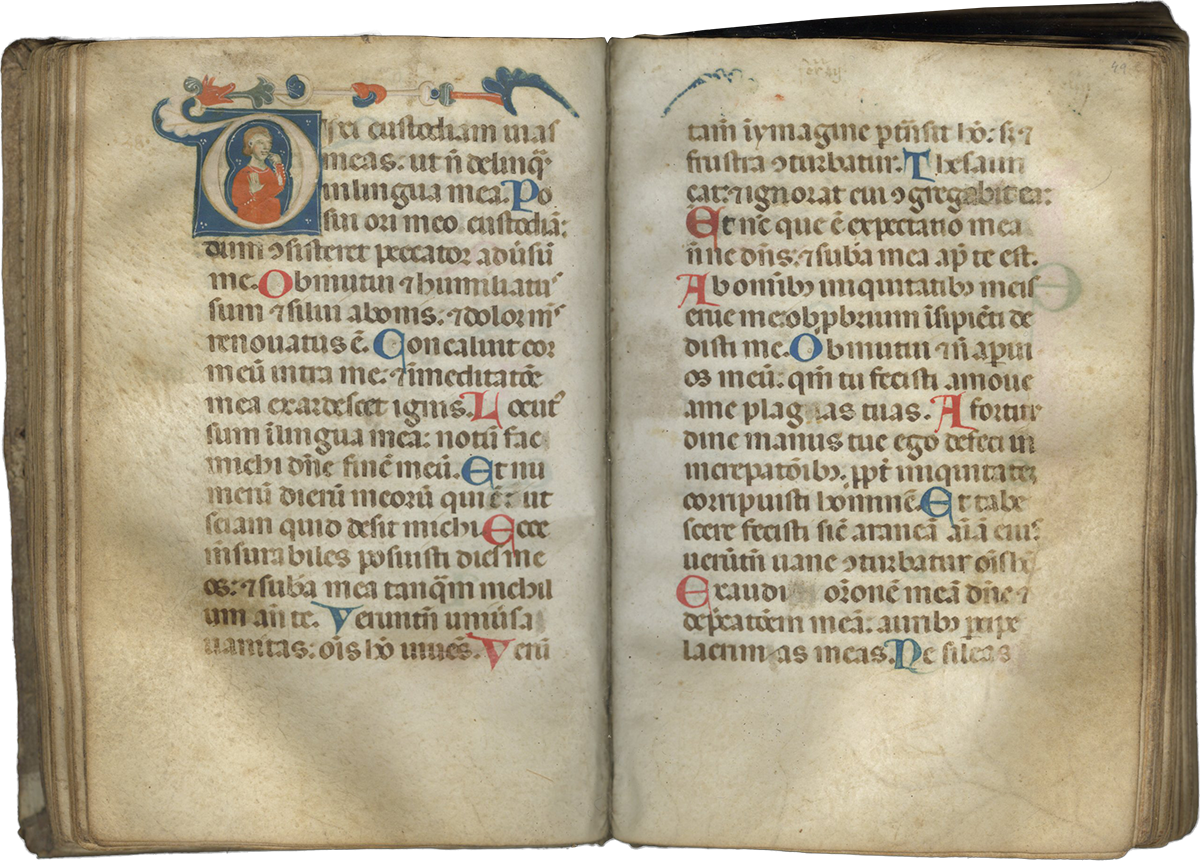 Dixi custodiam uias
meas: ut ñ delinq̃
in lingua mea. Po
sui ori meo custodiã:
dum ɔsisteret peccator aduˢsũ
me. Obmutui ⁊ humiliatꝰ
sum ⁊ silui a bonis: ⁊ dolor mꝰ
renouatus ẽ. Concaluit cor
meũ intra me: ⁊ ĩ meditatõe
mea exardescet ignis. Locutꝰ
sum ĩ lingua mea: notũ fac
michi dñe finẽ meũ. Et nu
merũ dierũ meorũ qui ẽ: ut
sciam quid desit michi. Ecce
m̃surabiles posuisti dies me
os: ⁊ sub̃a mea tanq̃m nichil
um añ te. Verumtñ uniũsa
uanitas: oĩs hõ uiuẽs. Verũ
tam̃ ĩ ymagine ꝑtñsit hõ: sꝫ ⁊
frustra ɔturbatur. Thesauri
cat: ⁊ ignorat cui ɔgregabit ea:
Et nũc que ẽ expectatio mea
ñne dñs: ⁊ sub̃a mea apˀ te est.
Ab omĩbꝫ iniquitatibꝫ meis
erue me: obꝓbrium ĩsipiẽti de
disti me. Obmutui ⁊ ñ aperui
os meũ: qm̃ tu fecisti amoue
a me plagas tuas. A fortitu
dine manus tue ego defeci in
increpatõibꝫ, ꝓpt̃ iniquitatẽ
corripuisti hominẽ. Et tabe
scere fecisti sic̃ araneã aĩaã eiuꝰ
uerũtñ uane ɔturbatur oĩs hõ.
Exaudi orõnẽ meã dñe ⁊
dep̃catõem meã: auribꝫ ꝑcipe
lacrimas meas. Ne sileas
49